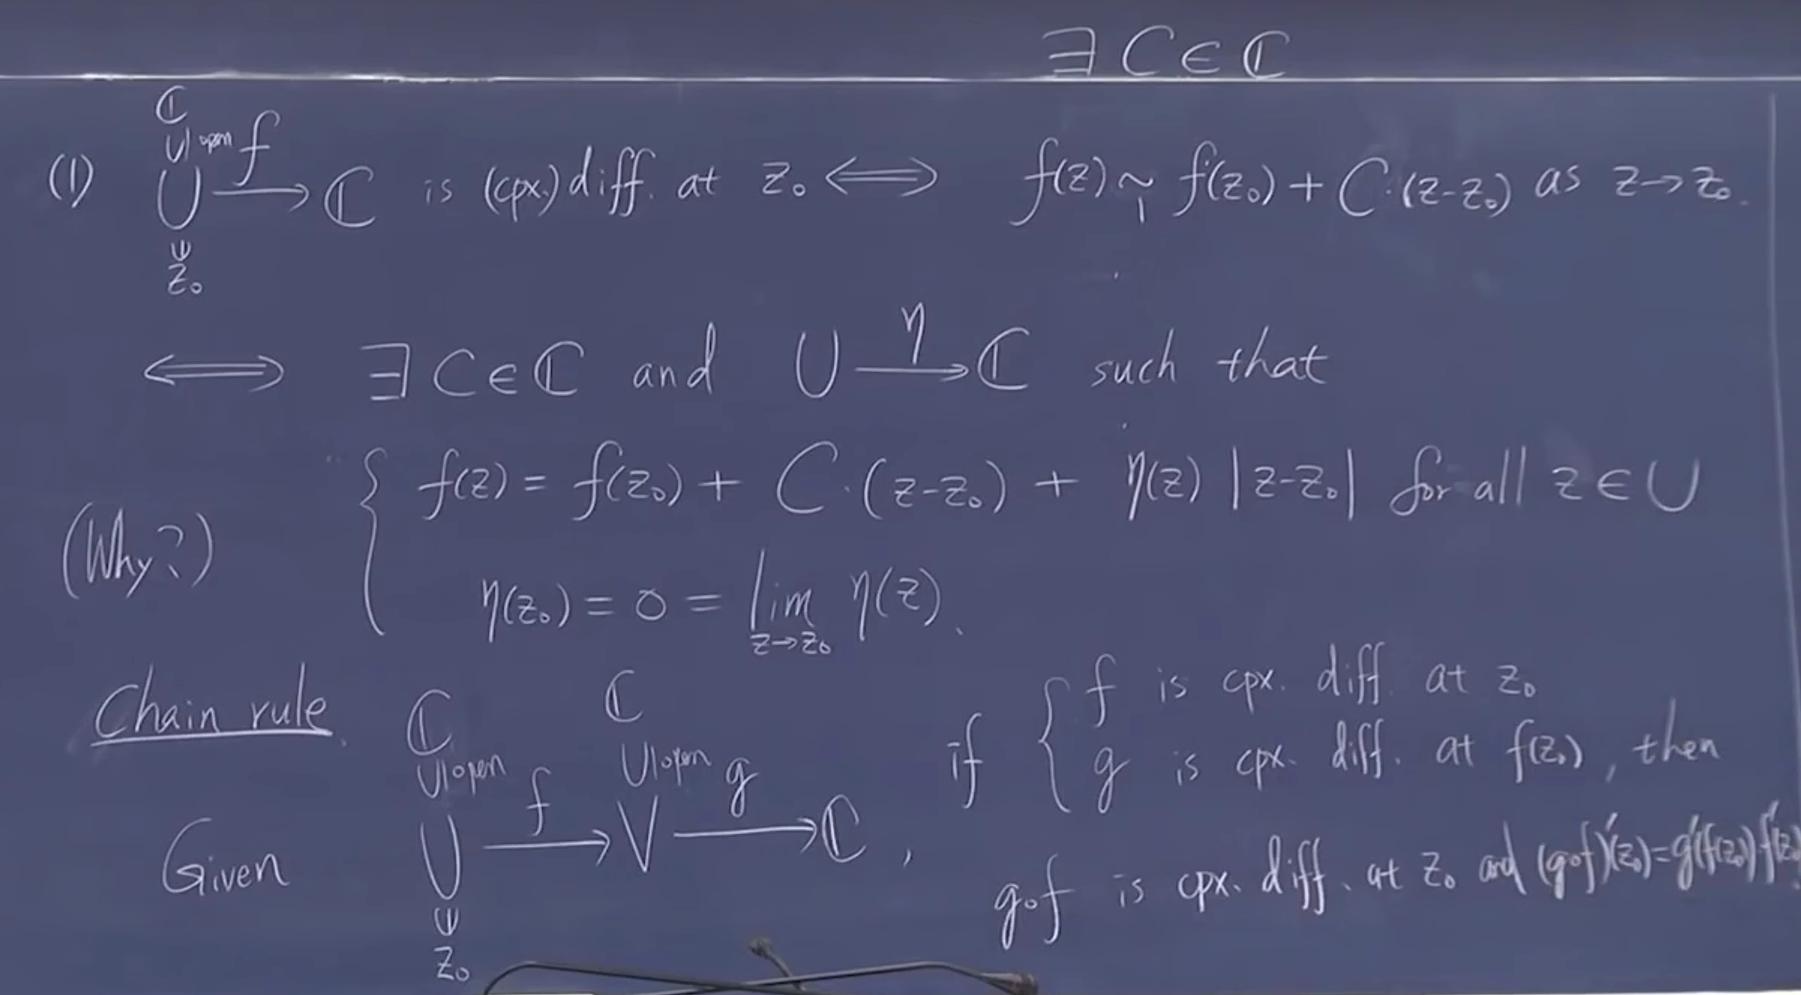 ∃ C ∈ ℂ
ℂ
∪| open
(1) U —f→ ℂ is (cpx.) diff. at z₀ ⟺ f(z) ~₁ f(z₀) + C·(z-z₀) as z→z₀.
∪|
z₀
⟺ ∃ C ∈ ℂ and U —η→ ℂ such that
{ f(z) = f(z₀) + C·(z-z₀) + η(z) |z-z₀| for all z ∈ U
(Why?)
η(z₀) = 0 = lim_{z→z₀} η(z).
Chain rule.
ℂ ℂ
∪| open ∪| open
Given U —f→ V —g→ ℂ,
∪|
z₀
if { f is cpx. diff. at z₀
g is cpx. diff. at f(z₀), then
g∘f is cpx. diff. at z₀ and (g∘f)'(z₀) = g'(f(z₀)) f'(z₀)